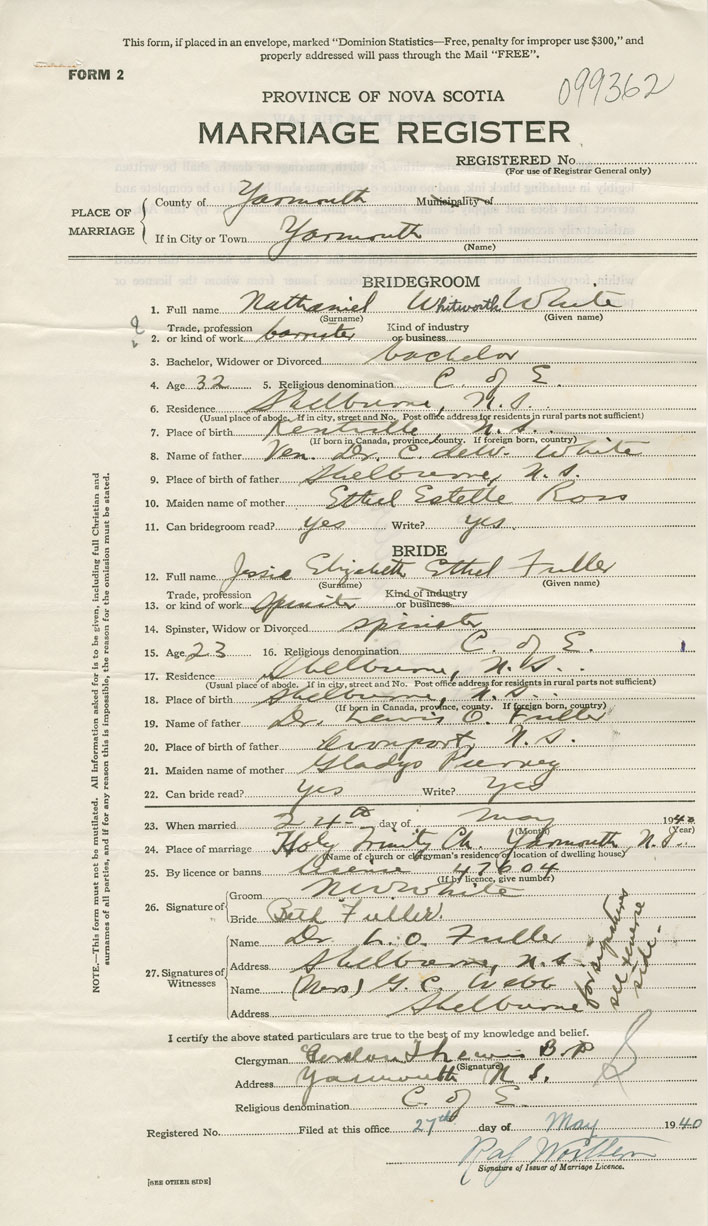 This form, if placed in an envelope, marked "Dominion Statistics—Free, penalty for improper use $300," and
properly addressed will pass through the Mail "FREE".
FORM 2
099362
PROVINCE OF NOVA SCOTIA
MARRIAGE REGISTER
REGISTERED No.
(For use of Registrar General only)
PLACE OF MARRIAGE
County of Yarmouth Municipality of
If in City or Town Yarmouth
(Name)
BRIDEGROOM
1. Full name Nathaniel Whitworth White
(Surname) (Given name)
2. Trade, profession or kind of work barrister Kind of industry or business
3. Bachelor, Widower or Divorced bachelor
4. Age 32 5. Religious denomination C. of E.
6. Residence Shelburne, N.S.
(Usual place of abode. If in city, street and No. Post office address for residents in rural parts not sufficient)
7. Place of birth Kentville, N.S.
(If born in Canada, province, county. If foreign born, country)
8. Name of father Ven. Dr. C. deW. White
9. Place of birth of father Shelburne, N.S.
10. Maiden name of mother Ethel Estelle Ross
11. Can bridegroom read? yes Write? yes.
BRIDE
12. Full name Jessie Elizabeth Ethel Fuller
(Surname) (Given name)
13. Trade, profession or kind of work spinster Kind of industry or business
14. Spinster, Widow or Divorced spinster
15. Age 23 16. Religious denomination C. of E.
17. Residence Shelburne, N.S.
(Usual place of abode. If in city, street and No. Post office address for residents in rural parts not sufficient)
18. Place of birth Shelburne, N.S.
(If born in Canada, province, county. If foreign born, country)
19. Name of father Dr. Lewis O. Fuller
20. Place of birth of father Avonport, N.S.
21. Maiden name of mother Gladys
22. Can bride read? yes Write? yes
23. When married 24th day of May 1940
(Month) (Year)
24. Place of marriage Holy Trinity Ch. Yarmouth N.S.
(Name of church or clergyman's residence or location of dwelling house)
25. By licence or banns 47604
(If by licence, give number)
26. Signature of
Groom N W White
Bride Beth Fuller.
27. Signatures of Witnesses
Name Dr. L. O. Fuller
Address Shelburne, N.S.
Name (Mrs) G. C. Webb
Address Shelburne
for signatures
see reverse
side.
I certify the above stated particulars are true to the best of my knowledge and belief.
Clergyman Gordon
(Signature)
Address Yarmouth N.S.
Religious denomination C. of E.
Registered No. Filed at this office 27th day of May 1940
Signature of Issuer of Marriage Licence.
[SEE OTHER SIDE]
NOTE.—This form must not be mutilated. All information asked for is to be given, including full Christian and
surnames of all parties, and if for any reason this is impossible, the reason for the omission must be stated.